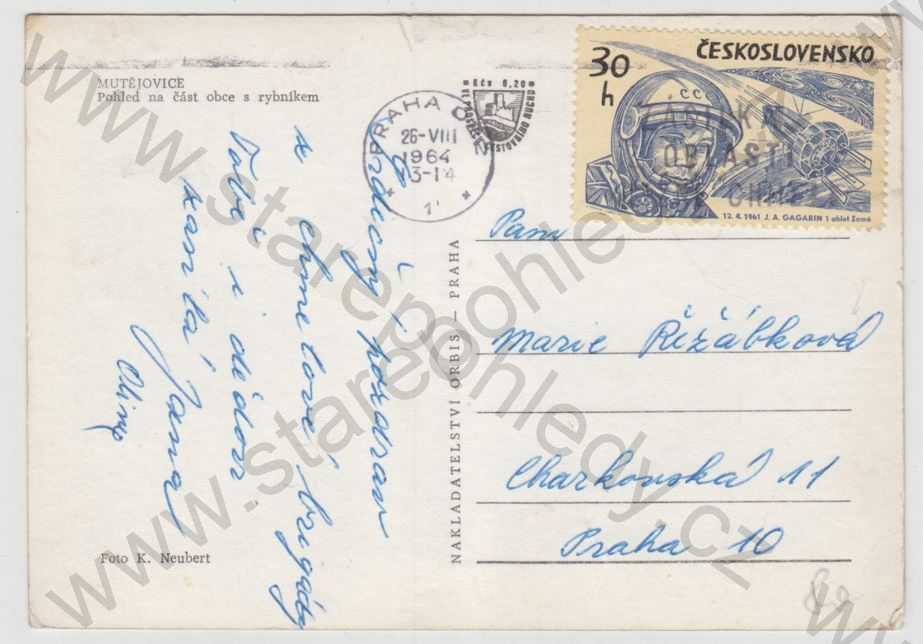 MUTĚJOVICE
Pohled na část obce s rybníkem
Srdečný pozdrav
z chmelové brigády
Tobě i dědovi
zasílá Jana
PRAHA
26-VIII
1964
13-14
1
Kčs 0,20
ČESKOSLOVENSKO
30
h
OBLASTI
12. 4. 1961 J. A. GAGARIN 1 oblet Země
Paní
Marie Řížábková
Charkovská 11
Praha 10
NAKLADATELSTVÍ ORBIS — PRAHA
Foto K. Neubert
88
www.starepohledy.cz